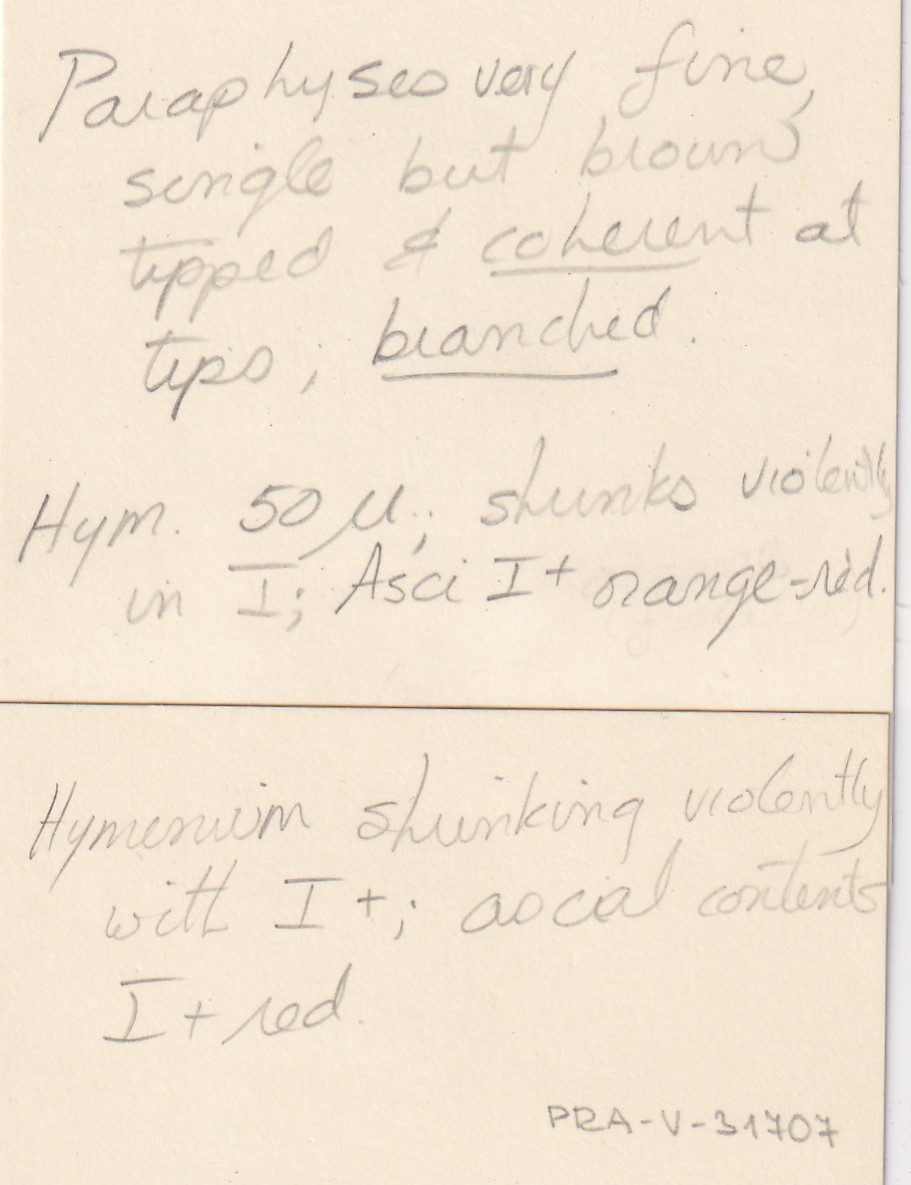 Paraphyses very fine,
single but brown
tipped & coherent at
tips; branched.
Hym. 50 µ.; shrinks violently
in I; Asci I+ orange-red.
Hymenium shrinking violently
with I+; ascal contents
I+ red.
PRA-V-31707